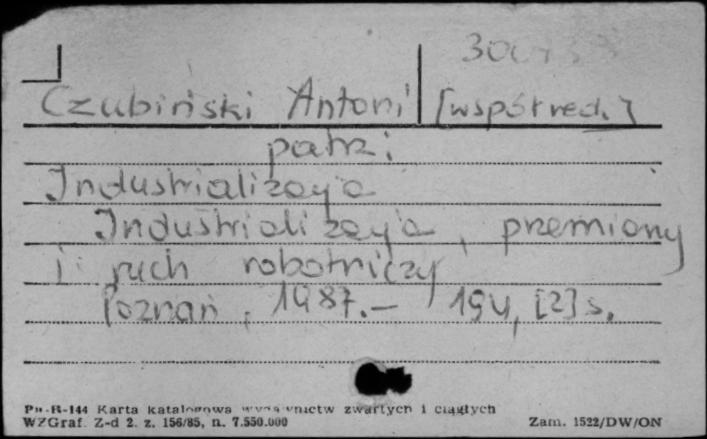 Czubiński Antoni [współred.]
patrz:
Industrializacja
Industrializacja, przemiany
i ruch robotniczy
Poznań, 1987.- 194, [2] s.
Pu-B-144 Karta katalogowa wydawnictw zwartych i ciągłych
WZGraf. Z-d 2. z. 156/85, n. 7.550.000 Zam. 1522/DW/ON